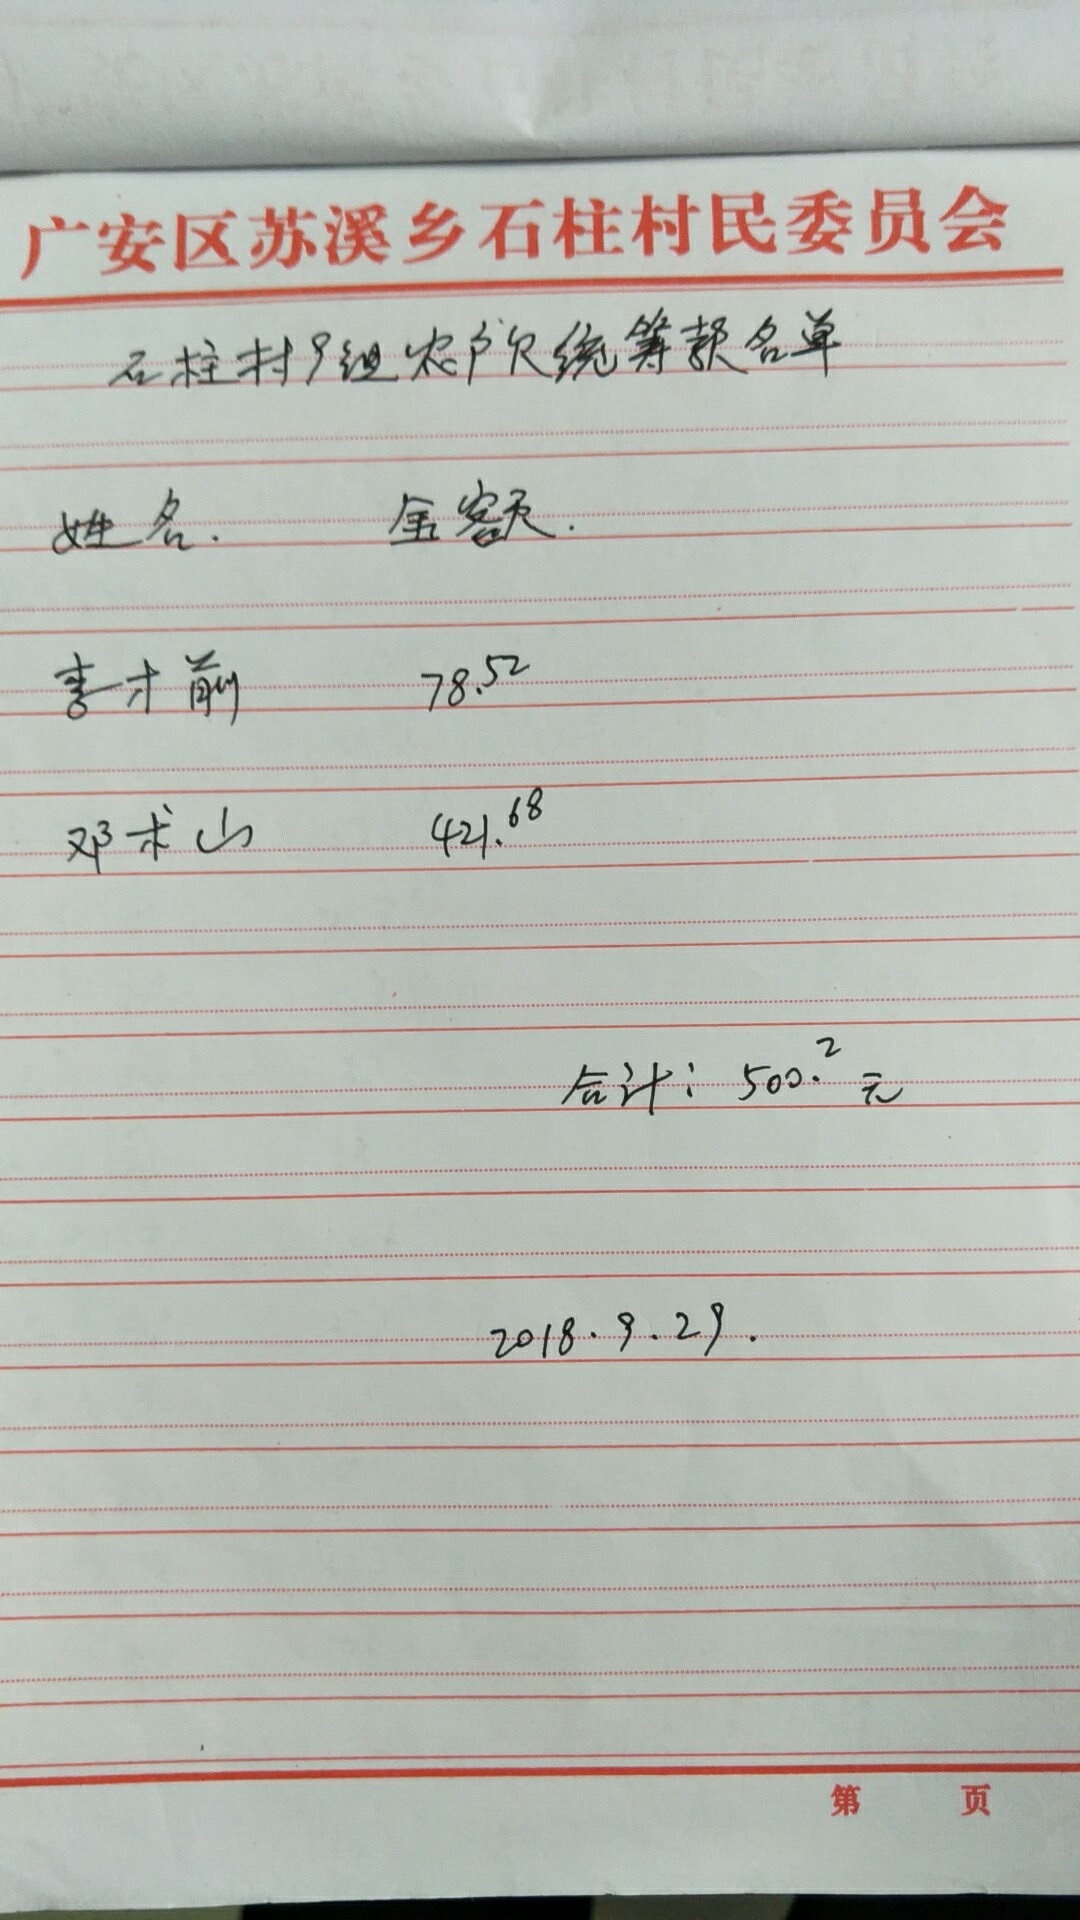 广安区苏溪乡石柱村民委员会
石柱村9组农户欠统筹款名单
姓名. 金额.
李才前 78.52
邓术山 421.68
合计: 500.2元
2018.9.29.
第 页